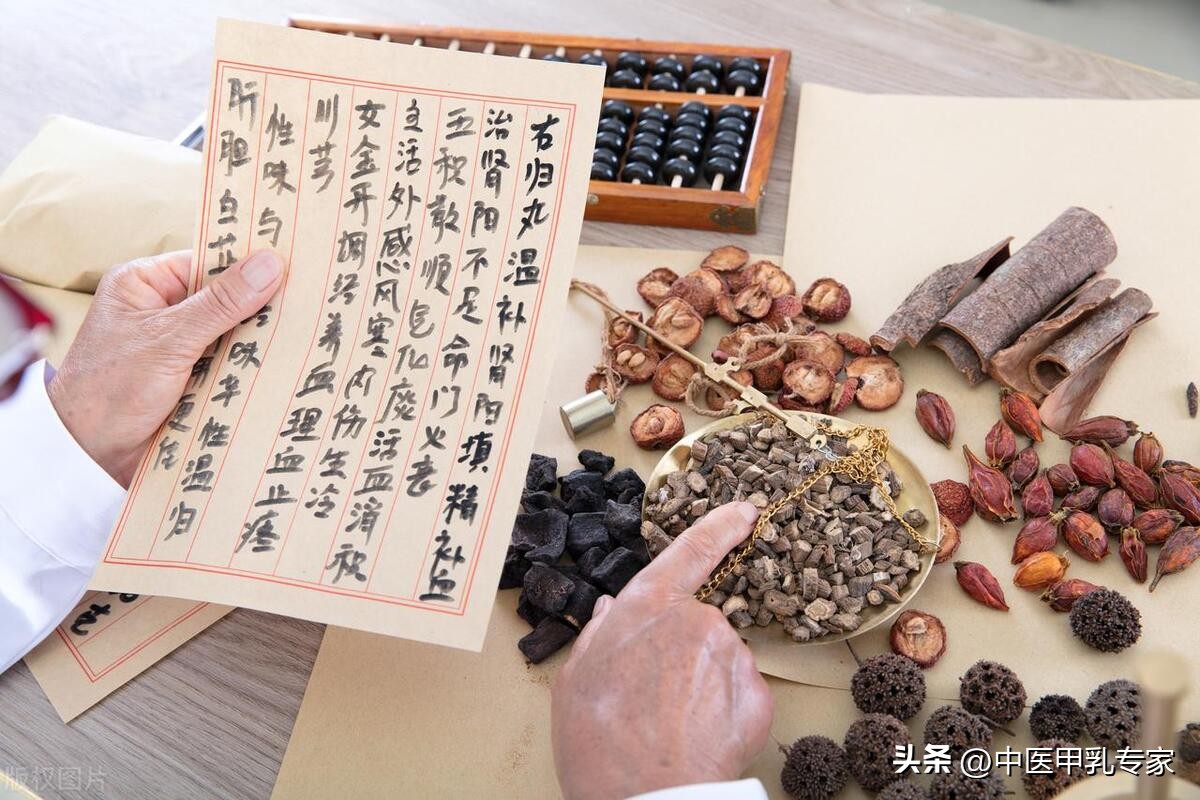 右归丸温补肾阳填精补血
治肾阳不足命门火衰
五积散顺气化痰活血消积
主活外感风寒内伤生冷
女金丹调经养血理血止疼
川芎
性味与 味辛性温归
肝胆 白芷
头条 @中医甲乳专家
版权图片